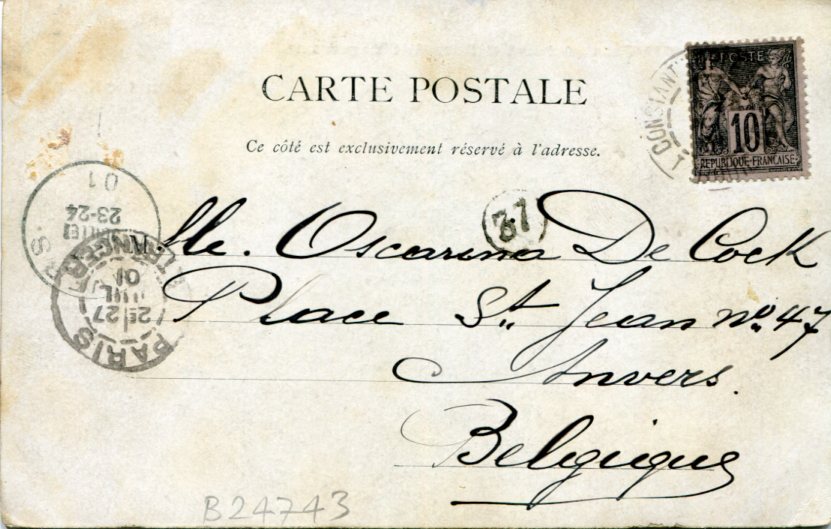 CARTE POSTALE
Ce côté est exclusivement réservé à l'adresse.
POSTE
10
REPUBLIQUE FRANÇAISE
1 CONSTANT
37
Mlle. Oscarina De Cock
Place St. Jean No. 47
Anvers.
Belgique
01
23-24
PARIS
ETRANGER
27
JUIL
01
B24743